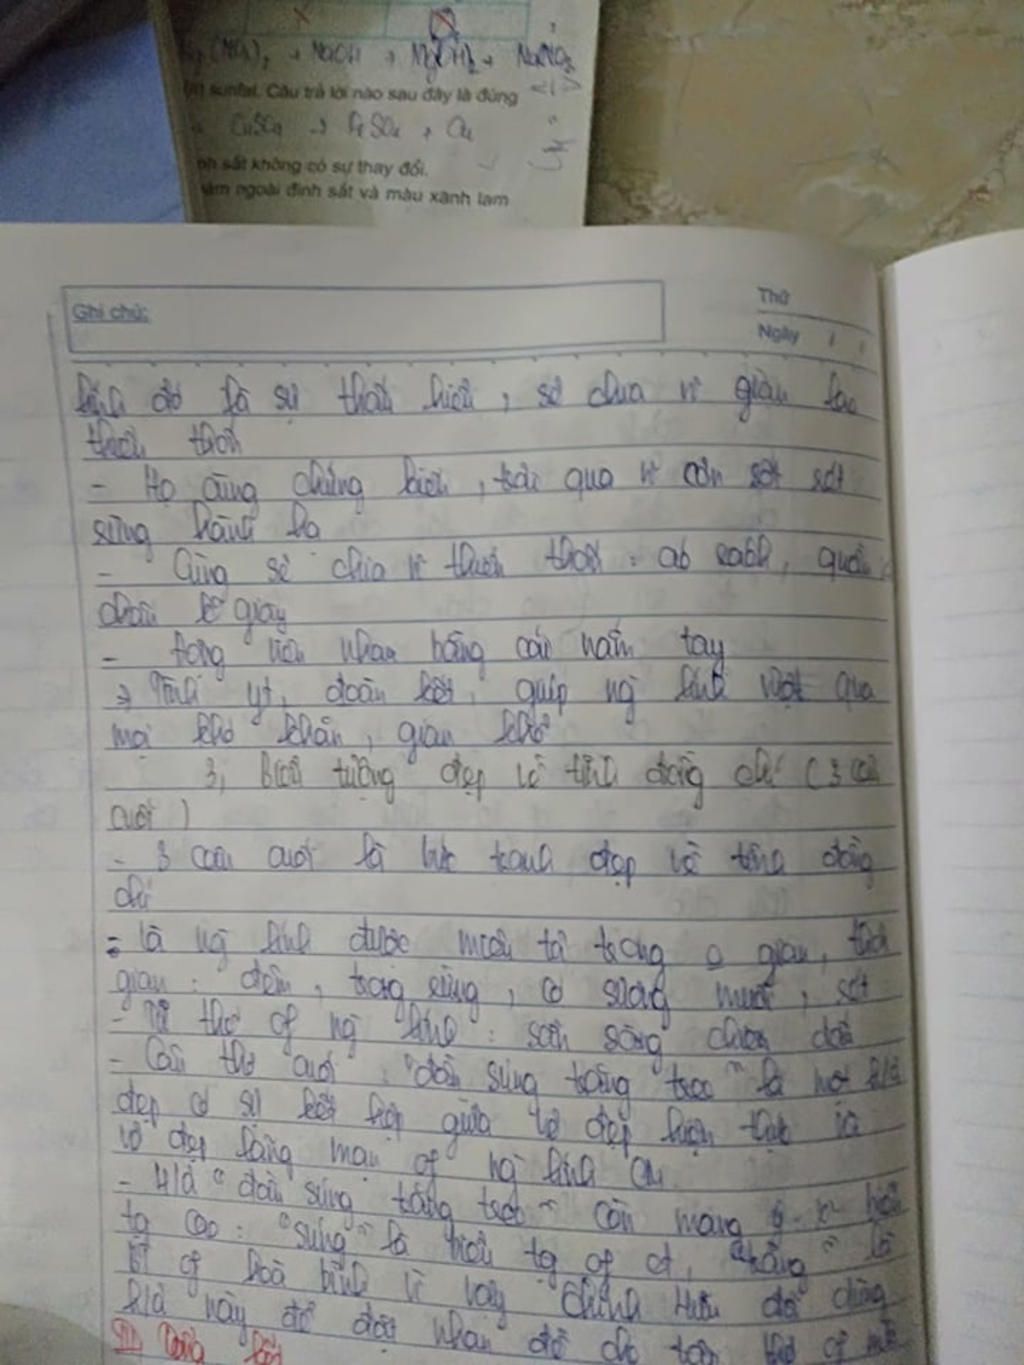 + NaOH → Mg(OH)2 + NaNO3
sunfat. Câu trả lời nào sau đây là đúng
CuSO4 → FeSO4 + Cu
sắt không có sự thay đổi.
ngoài đinh sắt và màu xanh lam
Ghi chú:
Thứ
Ngày / /
lính đó là sự thấu hiểu, sẻ chia về gian lao
thiếu thốn
- Họ cùng chứng kiến, trải qua về cơn sốt sốt
rừng hành hạ
- Cùng sẻ chia về thiếu thốn : áo rách, quần
chân k giày
- tay
→ Tình yt, đoàn kết, giúp ng lính vượt qua
mọi khó khăn, gian khổ
3, Biểu tượng đẹp về tình đồng chí ( 3 câu
cuối )
- 3 câu cuối là bức tranh đẹp về tình đồng
chí
- là ng lính được miêu tả trong o gian, thời
gian : đêm, trong rừng, có sương muối, sốt
- Tư thế of ng lính : sẵn sàng chiến đấu
- Câu thơ cuối : "đầu súng trăng treo" là h/ả
đẹp có sự kết hợp giữa vẻ đẹp hiện thực và
vẻ đẹp lãng mạn of ng lính CM
- H/ả "đầu súng trăng treo" còn mang ý
tg cao : "súng" là biểu tg of ct, "trăng" là
bt of hoà bình vì vậy Chính Hữu đã dùng
h/ả này để đặt nhan đề cho tập thơ of
III Tổng kết